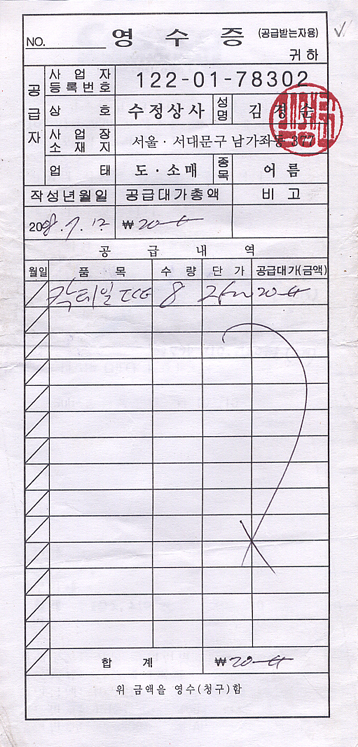 NO. 영 수 증 (공급받는자용)
귀 하
공급자
사 업 자 등 록 번 호 122-01-78302
상 호 수정상사 성명 김
사 업 장 소 재 지 서울·서대문구 남가좌동
업 태 도·소매 종목 어름
작성년월일 공급대가총액 비 고
2008. 7. 12 ₩20
공 급 내 역
월일 품 목 수 량 단 가 공급대가(금액)
칵테일 8 20
합 계 ₩20
위 금액을 영수(청구)함